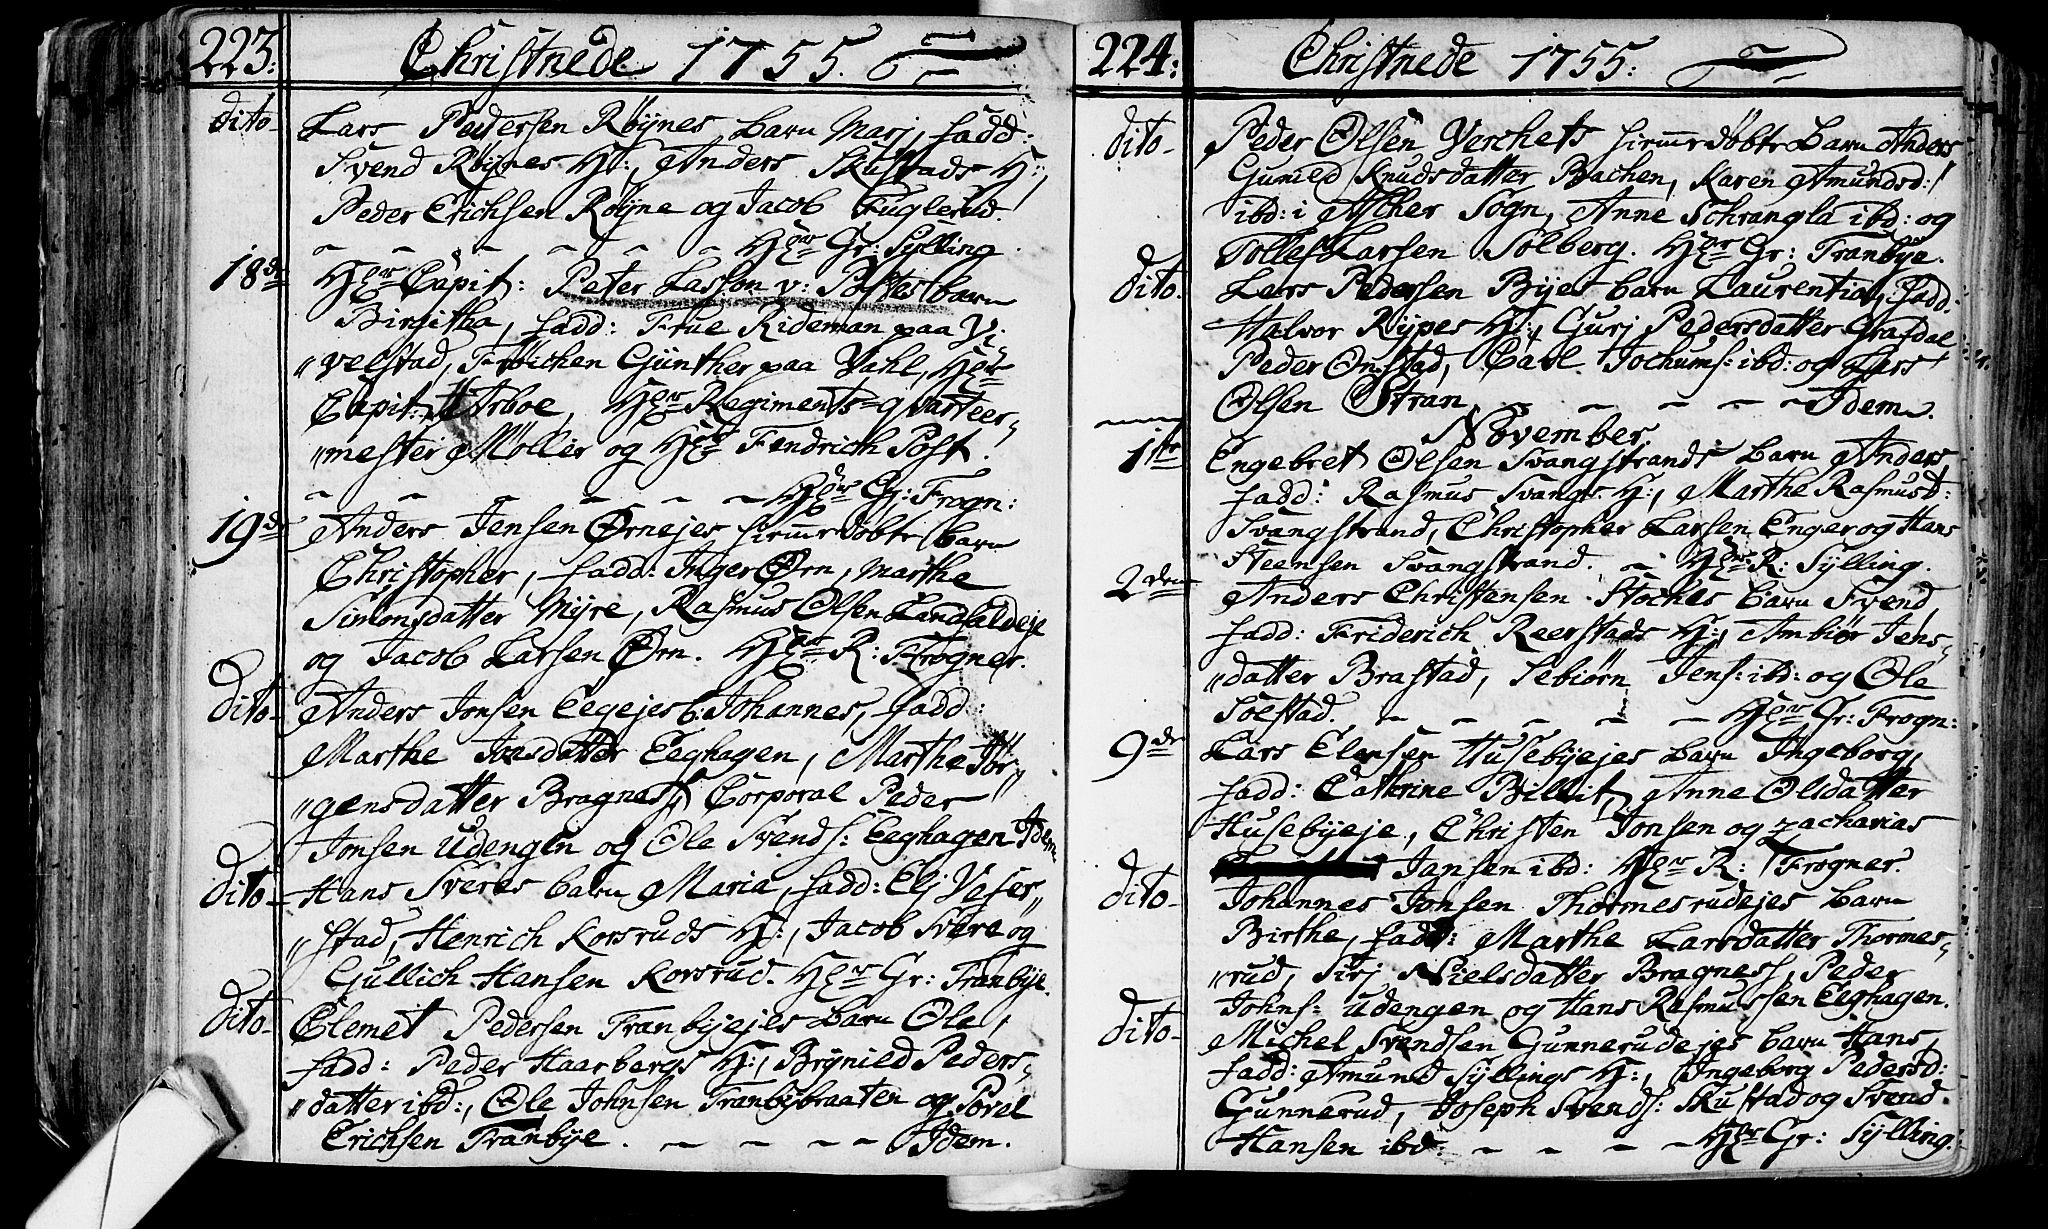 223:
Christnede 1755.
dito- Lars Pedersen Röynes barn Marj, fadd:
Svend Röynes H:, Anders Skustads H:,
Peder Erichsen Röyne og Jacob Fuglerud.
Hr Gr: Sylling.
18de Hr Capit: Peter Laston v: Postes barn
Birgitha, fadd: Frue Rideman paa V:
velstad, Fröichen Günther paa Vahl, Hr
Capit: Arboe, Hr Regiments-qvarteer-
mester Möller og Hr Fendrich Post.
Hr Gr: Frogn:
19de Anders Jensen Ørnejes hiemedöbte barn
Christopher, fadd: Inger Ørn, Marthe
Simonsdatter Myre, Rasmus Olsen Landfaldeje
og Jacob Larsen Ørn. Hr R: Frogner.
Dito- Anders Jonsen Eegejes b: Johannes, fadd:
Marthe Jonsdatter Eeghagen, Marthe Jör-
gensdatter Bragness, Corporal Peder
Jonsen Udengen og Ole Svends: Eeghagen Idem
dito- Hans Sveres barn Maria, fadd: Elj Veser-
stad, Henrich Korsruds H:, Jacob Svere og
Gullich Hansen Korsrud. Hr Gr: Tranbye.
dito- Clemet Pedersen Tranbyejes barn Ole,
fadd: Peder Haarbergs H:, Brynild Peders-
datter ibd:, Ole Johnsen Tranbybraaten og Povel
Erichsen Tranbye. Idem.
224:
Christnede 1755:
dito- Peder Olsen Verchets hiemedöbte barn Anders
Gunild Knudsdatter Bachen, Karen Amundsd:
ibd: i Ascher Sogn, Anne Schrangla ibd: og
Tollef Larsen Solberg. Hr Gr: Tranbye.
dito. Lars Pedersen Byes barn Laurentia, fadd:
Halvor Rypes H:, Gurj Pedersdatter Grafdal
Peder Onstad, Carl Jochums: ibd: og Lars
Olsen Stran Idem.
November
1te Engebret Olsen Svangstrands barn Anders,
fadd: Rasmus Svangs: H:, Marthe Rasmusd:
Svangstrand, Christopher Larsen Enger og Hans
Steensen Svangstrand. Hr R: Sylling.
2den Anders Christensen Stoches barn Svend,
fadd: Friderich Reerstads H:, Ambiör Jens-
datter Brastad, Sebiörn Jens: ibd: og Ole
Solstad. Hr Gr: Frogn:
9de Lars Elensen Husebyejes barn Ingeborg,
fadd: Cathrine Billit, Anne Olsdatter
Husebyeje, Christen Jonsen og Zacharias
Jansen ibd: Hr R: Frogner.
dito- Johannes Jonsen Thormesrudejes barn
Birthe, fadd: Marthe Larsdatter Thormes-
rud, Sirj Nielsdatter Bragness, Peder
Johns: Udengen og Hans Rasmussen Eeghagen.
dito- Michel Svendsen Gunnerudejes barn Hans,
fadd: Amund Syllings H:, Ingeborg Pedersd:
Gunnerud, Joseph Svends: Skustad og Svend
Hansen ibd: Hr Gr: Sylling: